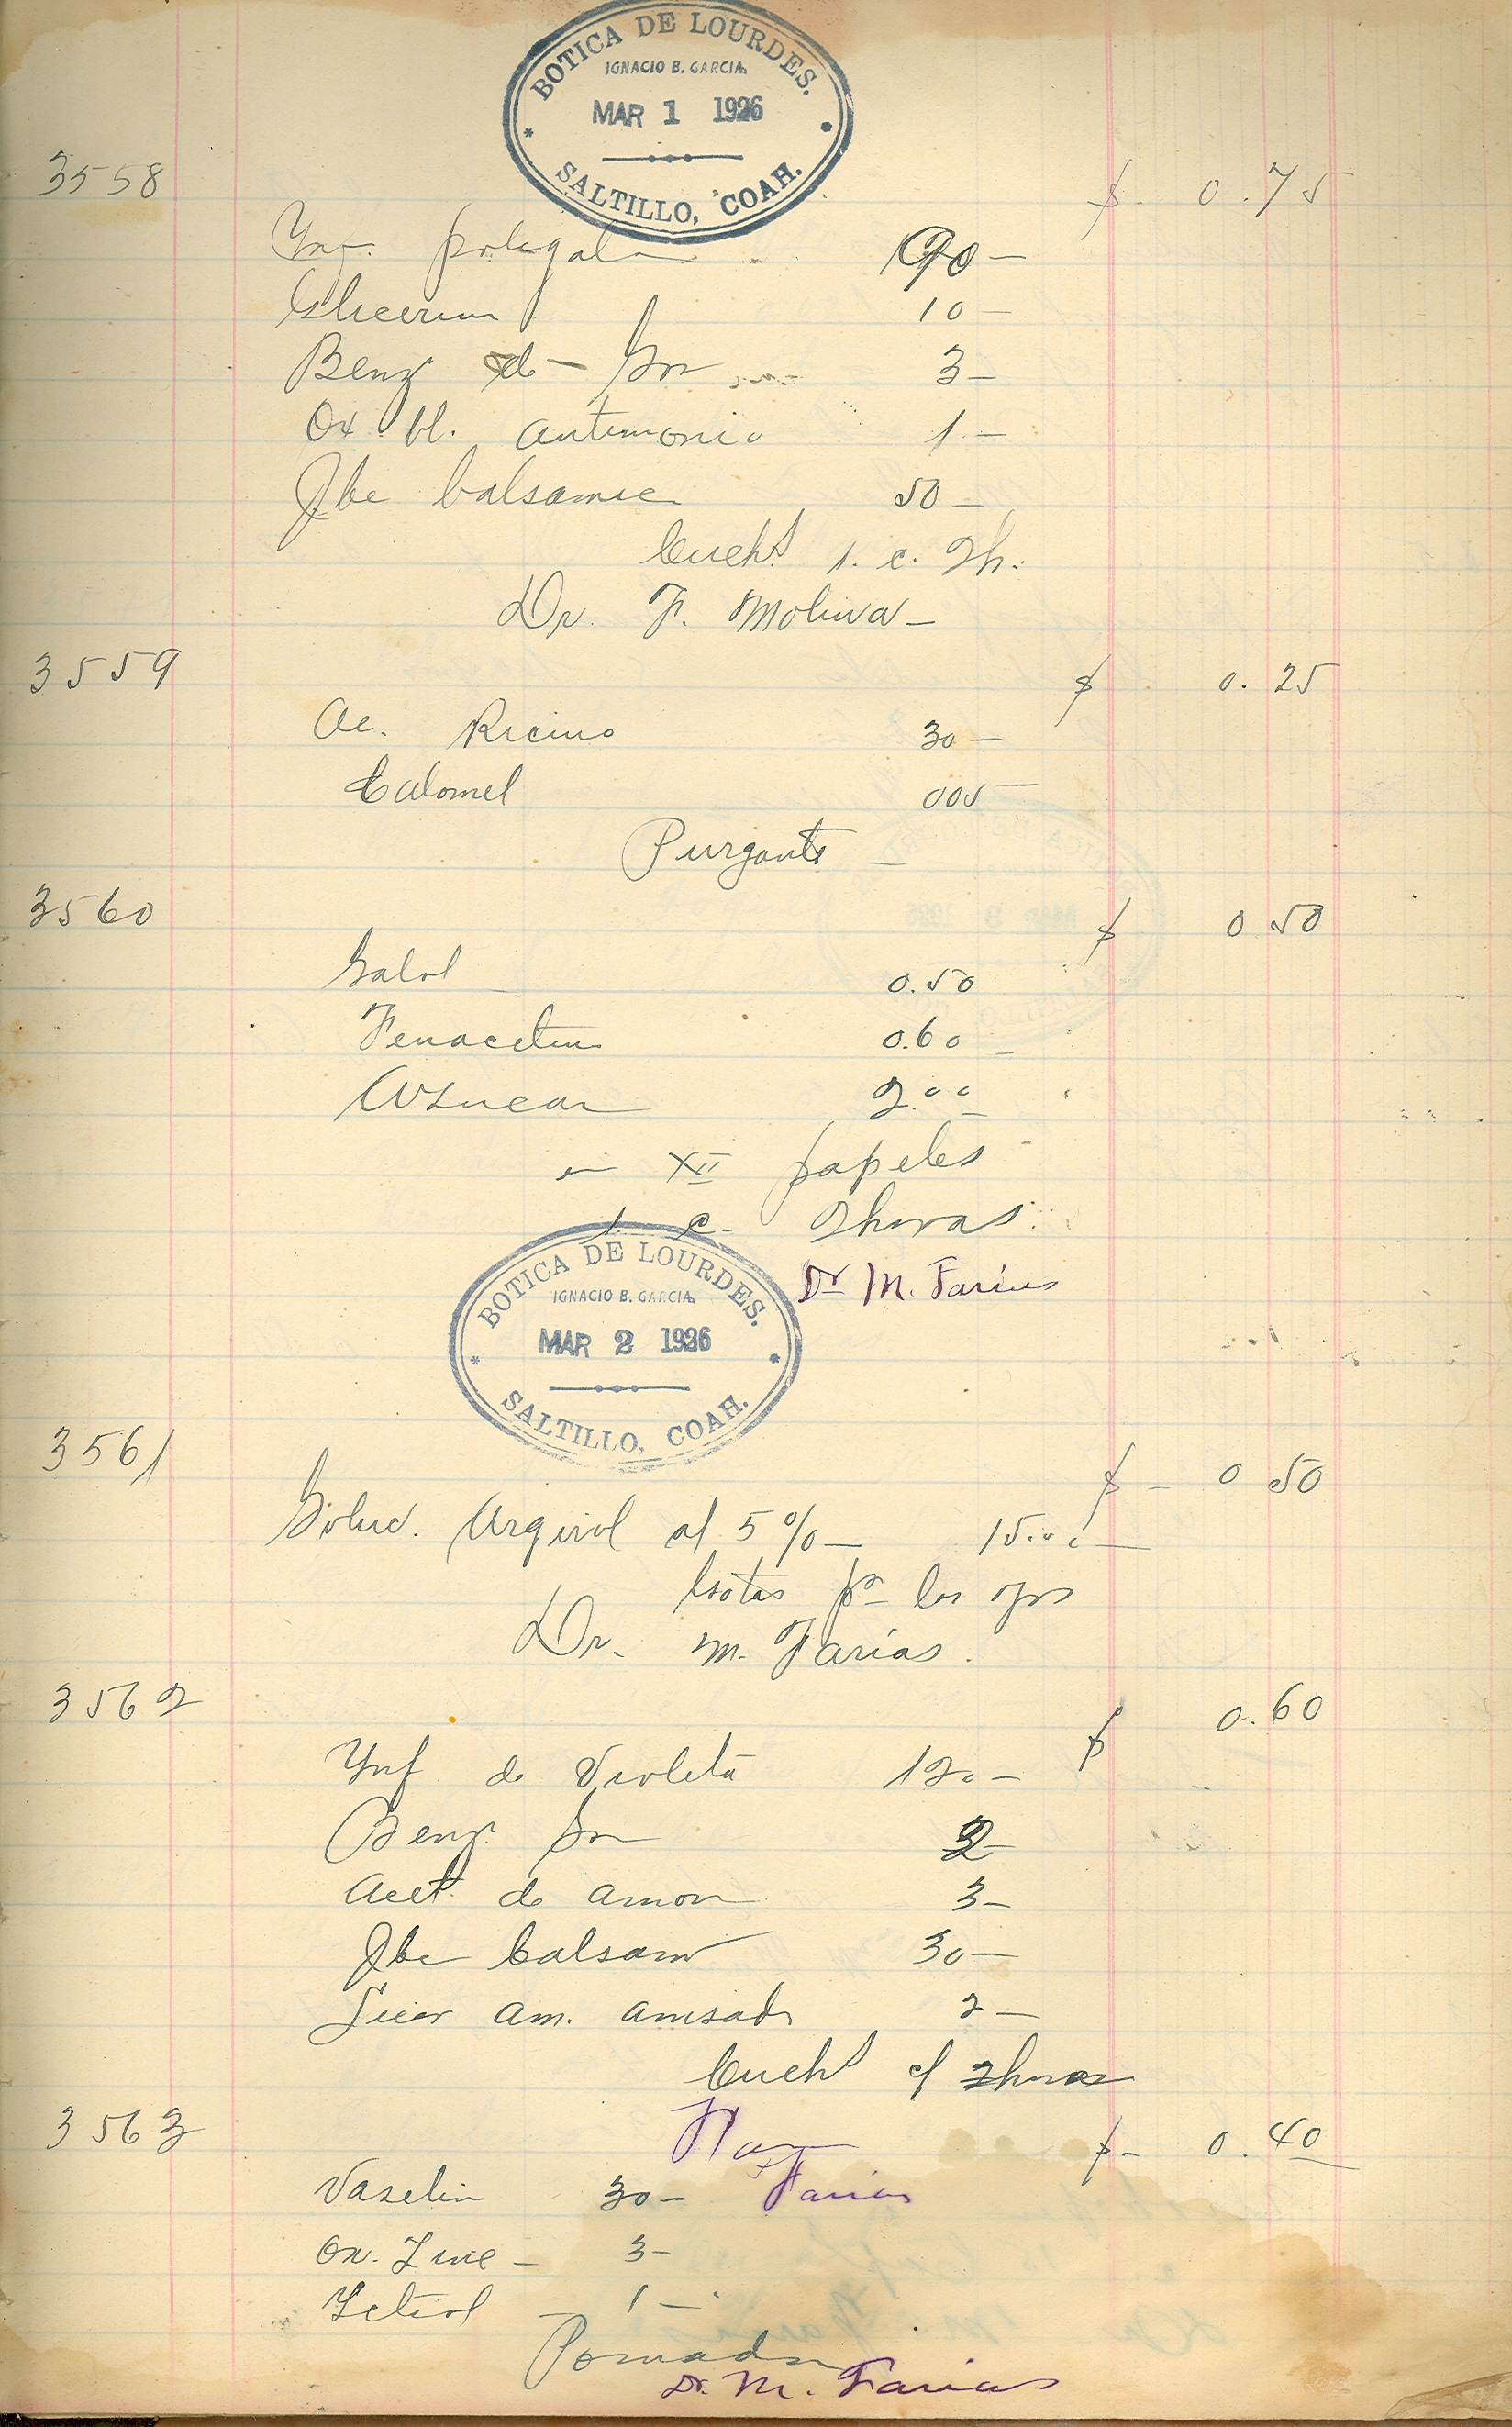 BOTICA DE LOURDES.
IGNACIO B. GARCIA.
MAR 1 1926
SALTILLO, COAH.
3558 $ 0.75
Ynf. poligala 90
Glicerina 10
Benz de So 3
Ox bl. antimonio 1
Jbe balsamic 50
Cuchs 1. c. 2h.
Dr. F. Molina
3559 $ 0.25
Ac. Ricino 30
Calomel 005
Purgante
3560 $ 0 50
Salol 0.50
Fenacetina 0.60
Azucar 2.00
en XII papeles
1 c. 2horas.
Dr M. Farias
BOTICA DE LOURDES.
IGNACIO B. GARCIA.
MAR 2 1926
SALTILLO, COAH.
3561 $ 0 50
Soluc. Argirol al 5% 15.00
Gotas pa los ojos
Dr. M. Farias.
3562 $ 0.60
Ynf de Violeta 120
Benz So 2
Acet. de amon 3
Jbe balsam 30
Licor am. anisado 2
Cuchs c/ 2horas
Farias
3563 $ 0.40
Vaselin 30
Ox. Zinc 3
Ictiol 1
Pomada
Dr. M. Farias